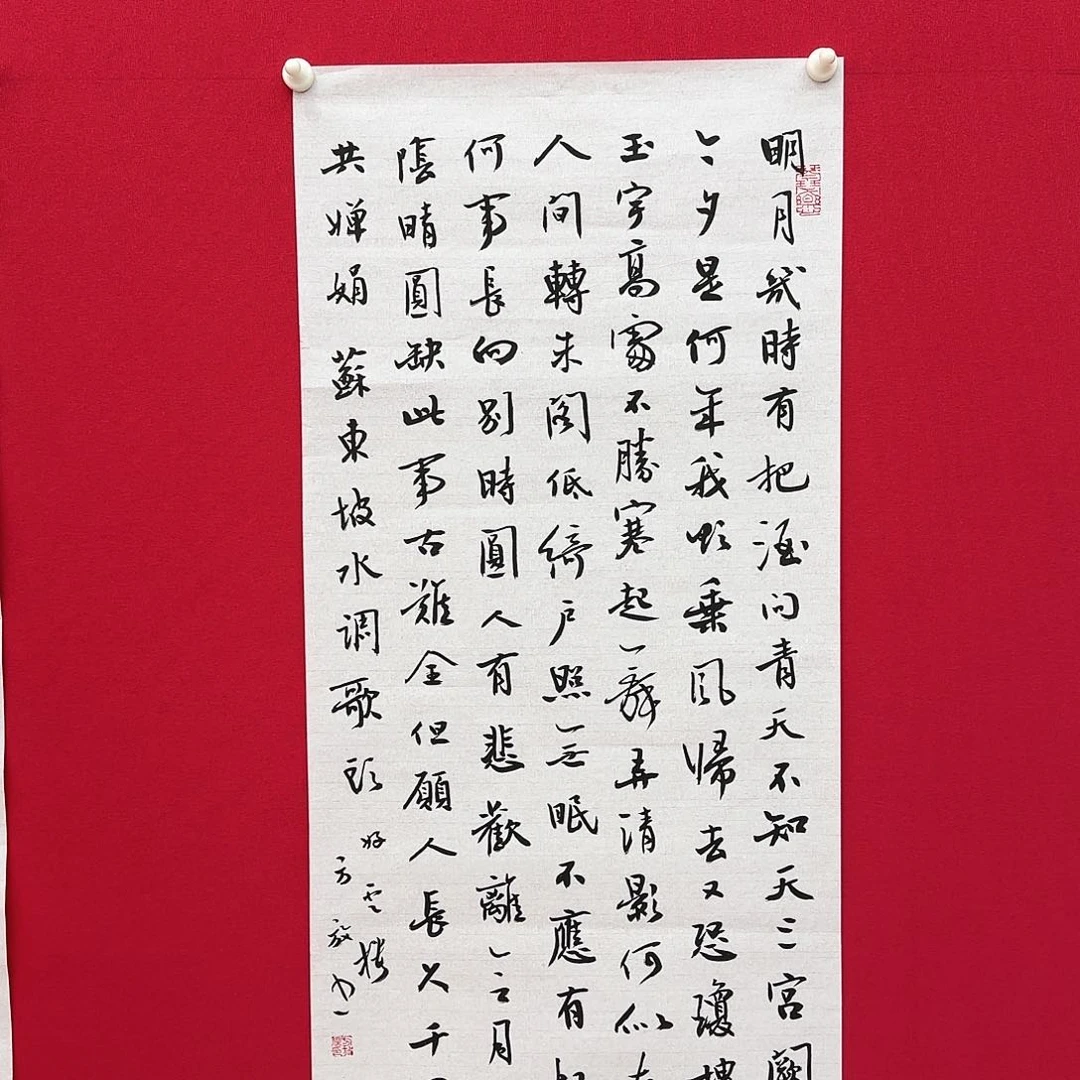 明月幾時有把酒問青天不知天上宮闕
今夕是何年我欲乘風歸去又恐瓊樓
玉宇高處不勝寒起舞弄清影何似在
人間轉朱閣低綺戶照無眠不應有恨
何事長向別時圓人有悲歡離合月
陰晴圓缺此事古難全但願人長久千
共嬋娟 蘇東坡水調歌頭
好雲樓
方放書